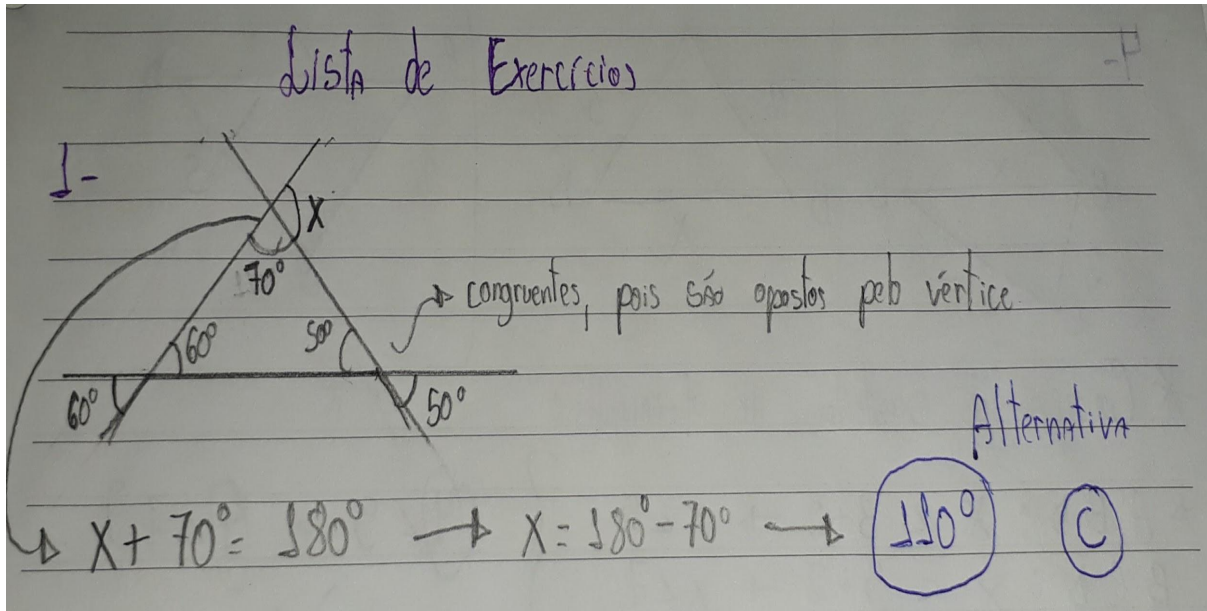 Lista de Exercícios
1-
X
70°
congruentes, pois são opostos pelo vértice
60°
50°
60°
50°
Alternativa
X + 70° = 180° → X = 180° - 70° → 110° C